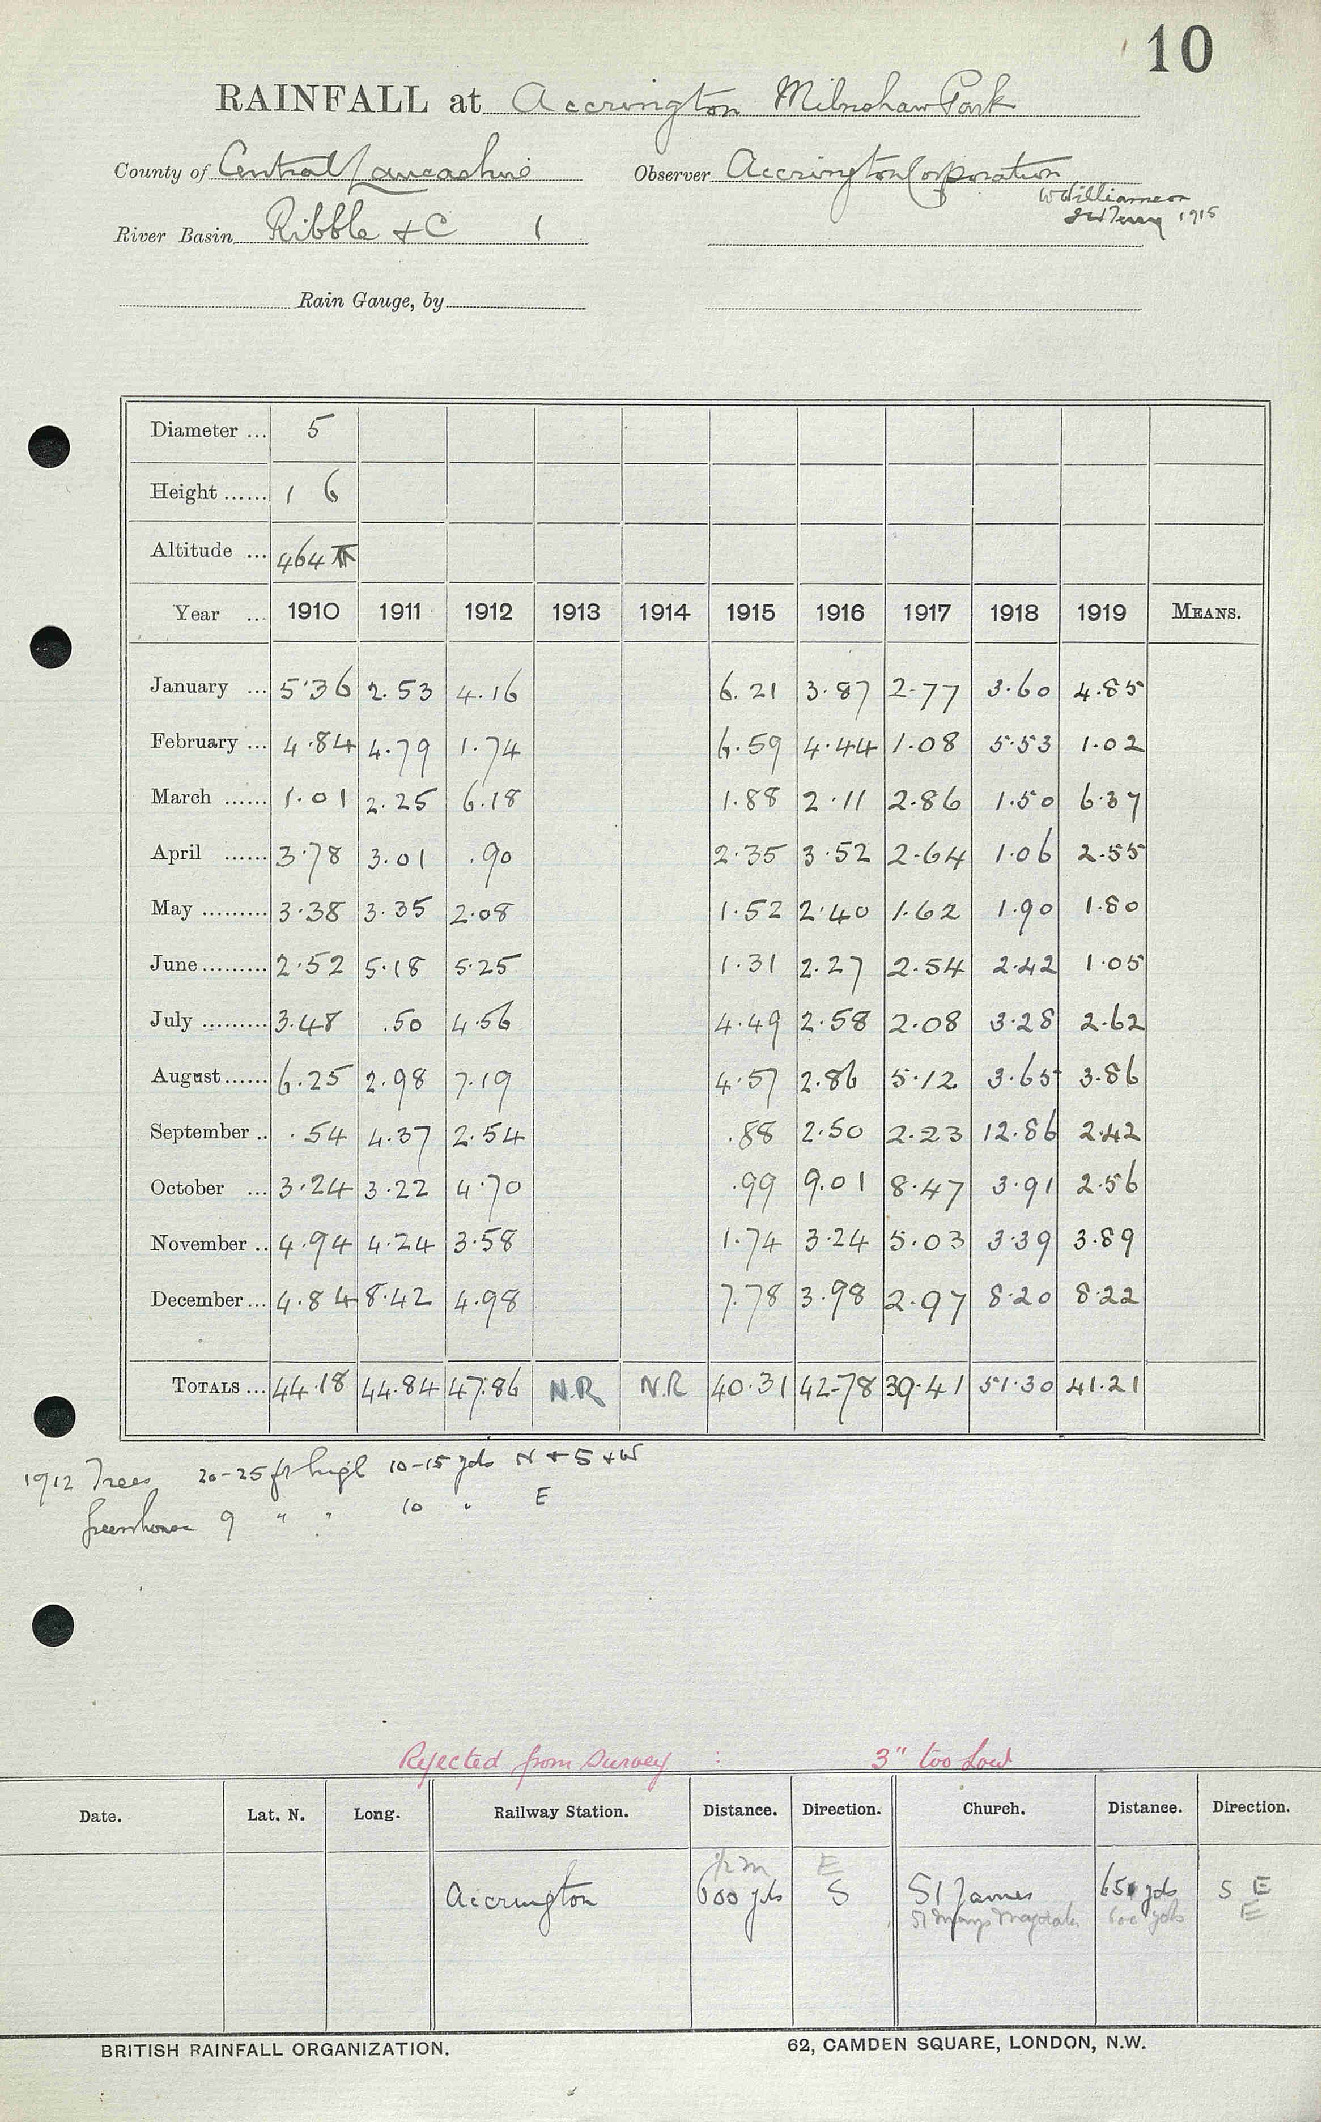 10
RAINFALL at Accrington Milnshaw Park
County of Central Lancashire Observer Accrington Corporation
W Williamson
River Basin Ribble & C 1 1915
Rain Gauge, by
Diameter ... 5
Height ...... 1 6
Altitude ... 464
Year ... 1910 1911 1912 1913 1914 1915 1916 1917 1918 1919 MEANS.
January ... 5.36 2.53 4.16 6.21 3.87 2.77 3.60 4.85
February ... 4.84 4.79 1.74 6.59 4.44 1.08 5.53 1.02
March ...... 1.01 2.25 6.18 1.88 2.11 2.86 1.50 6.37
April ...... 3.78 3.01 .90 2.35 3.52 2.64 1.06 2.55
May ......... 3.38 3.35 2.08 1.52 2.40 1.62 1.90 1.80
June ......... 2.52 5.18 5.25 1.31 2.27 2.54 2.42 1.05
July ......... 3.48 .50 4.56 4.49 2.58 2.08 3.28 2.62
August ...... 6.25 2.98 7.19 4.57 2.86 5.12 3.65 3.86
September .. .54 4.37 2.54 .88 2.50 2.23 12.86 2.42
October ... 3.24 3.22 4.70 .99 9.01 8.47 3.91 2.56
November .. 4.94 4.24 3.58 1.74 3.24 5.03 3.39 3.89
December ... 4.84 8.42 4.98 7.78 3.98 2.97 8.20 8.22
TOTALS ... 44.18 44.84 47.86 N.R N.R 40.31 42.78 39.41 51.30 41.21
1912 Trees 20-25 ft high 10-15 yds N + S + W
Greenhouse 9 " " 10 " E
Rejected from Survey : 3" too low
Date. Lat. N. Long. Railway Station. Distance. Direction. Church. Distance. Direction.
E
Accrington 600 yds S St James 650 yds S E
St Marys Magdalen 600 yds E
BRITISH RAINFALL ORGANIZATION. 62, CAMDEN SQUARE, LONDON, N.W.